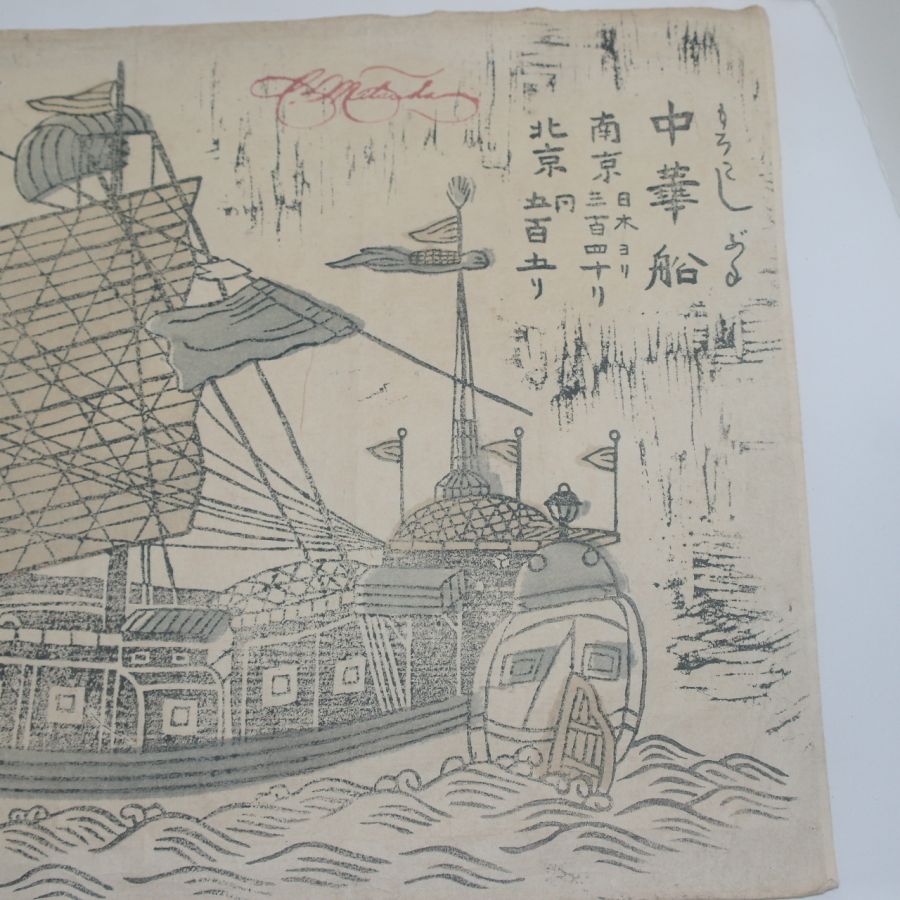 もろこしぶね
中華船
南京 日本ヨリ
三百四十リ
北京 同
五百五リ